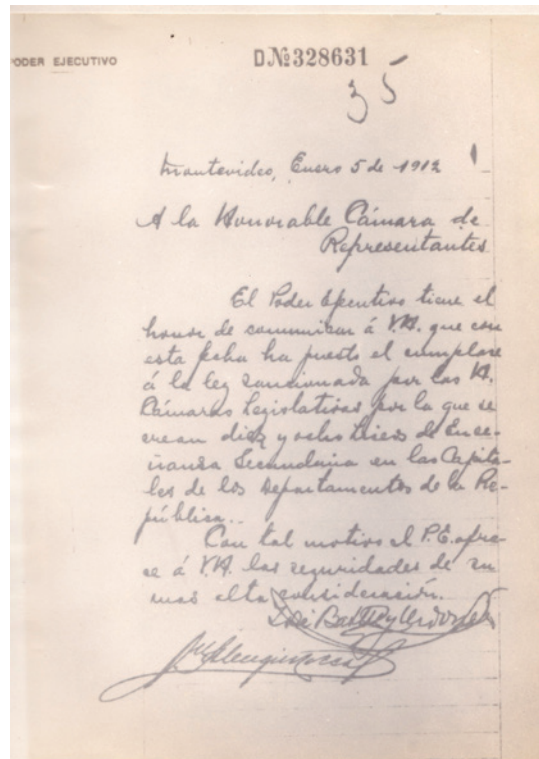 PODER EJECUTIVO
D№328631
35
Montevideo, Enero 5 de 1912
A la Honorable Cámara de
Representantes
El Poder Ejecutivo tiene el
honor de comunicar á V.H. que con
esta fecha ha puesto el cumplase
á la ley sancionada por las H.
Cámaras Legislativas por la que se
crean diez y ocho Liceos de Ense-
ñanza Secundaria en las Capita-
les de los departamentos de la Re-
pública.
Con tal motivo el P.E. ofre-
ce á V.H. las seguridades de su
mas alta consideración.
José Batlle y Ordoñez